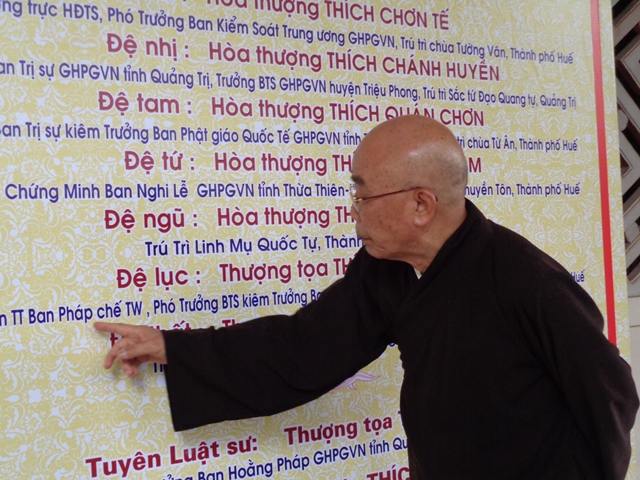 Hòa thượng THÍCH CHƠN TẾ
trực HĐTS, Phó Trưởng Ban Kiểm Soát Trung ương GHPGVN, Trú trì chùa Tường Vân, Thành phố Huế
Đệ nhị : Hòa thượng THÍCH CHÁNH HUYỀN
Trị sự GHPGVN tỉnh Quảng Trị, Trưởng BTS GHPGVN huyện Triệu Phong, Trú trì Sắc tứ Đạo Quang tự, Quảng Trị
Đệ tam : Hòa thượng THÍCH QUÁN CHƠN
Ban Trị sự kiêm Trưởng Ban Phật giáo Quốc Tế GHPGVN tỉnh chùa Từ Ân, Thành phố Huế
Đệ tứ : Hòa thượng
Chứng Minh Ban Nghi Lễ GHPGVN tỉnh Thừa Thiên- Tôn, Thành phố Huế
Đệ ngũ : Hòa thượng
Trú Trì Linh Mụ Quốc Tự,
Đệ lục : Thượng tọa
TT Ban Pháp chế TW , Phó Trưởng BTS kiêm Trưởng Huế
Tuyên Luật sư: Thượng tọa
Ban Hoằng Pháp GHPGVN tỉnh